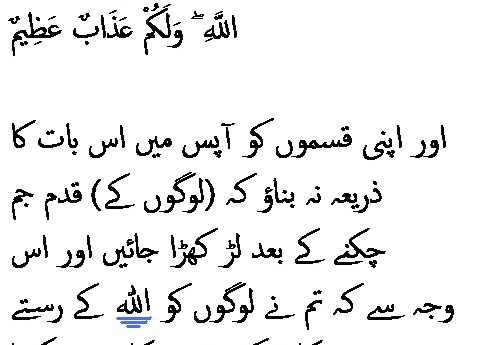 اللَّهِ ۚ وَلَكُمْ عَذَابٌ عَظِيمٌ
اور اپنی قسموں کو آپس میں اس بات کا
ذریعہ نہ بناؤ کہ (لوگوں کے) قدم جم
چکنے کے بعد لڑ کھڑا جائیں اور اس
وجہ سے کہ تم نے لوگوں کو اللہ کے رستے